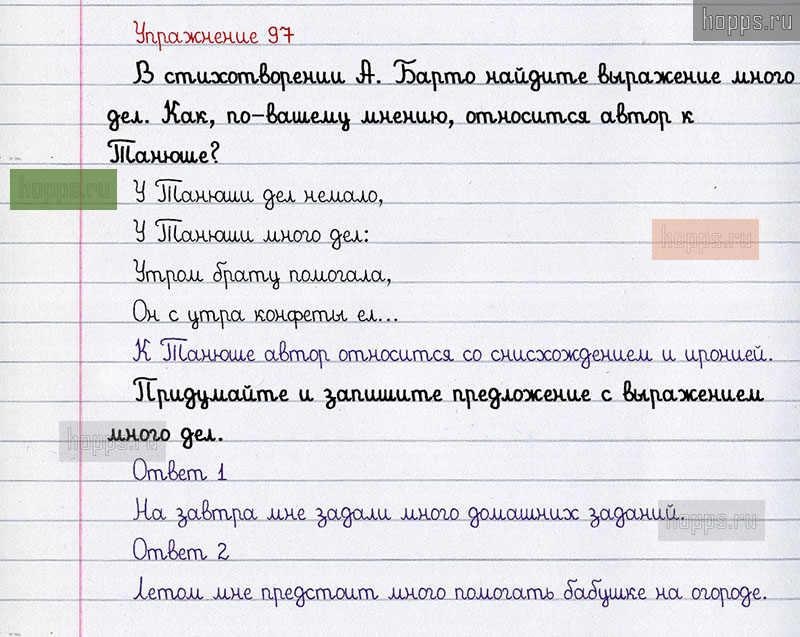 hopps.ru
Упражнение 97
В стихотворении А. Барто найдите выражение много
дел. Как, по-вашему мнению, относится автор к
Танюше?
hopps.ru
У Танюши дел немало,
У Танюши много дел:
hopps.ru
Утром брату помогала,
Он с утра конфеты ел...
К Танюше автор относится со снисхождением и иронией.
Придумайте и запишите предложение с выражением
много дел.
hopps.ru
Ответ 1
На завтра мне задали много домашних заданий.
hopps.ru
Ответ 2
Летом мне предстоит много помогать бабушке на огороде.